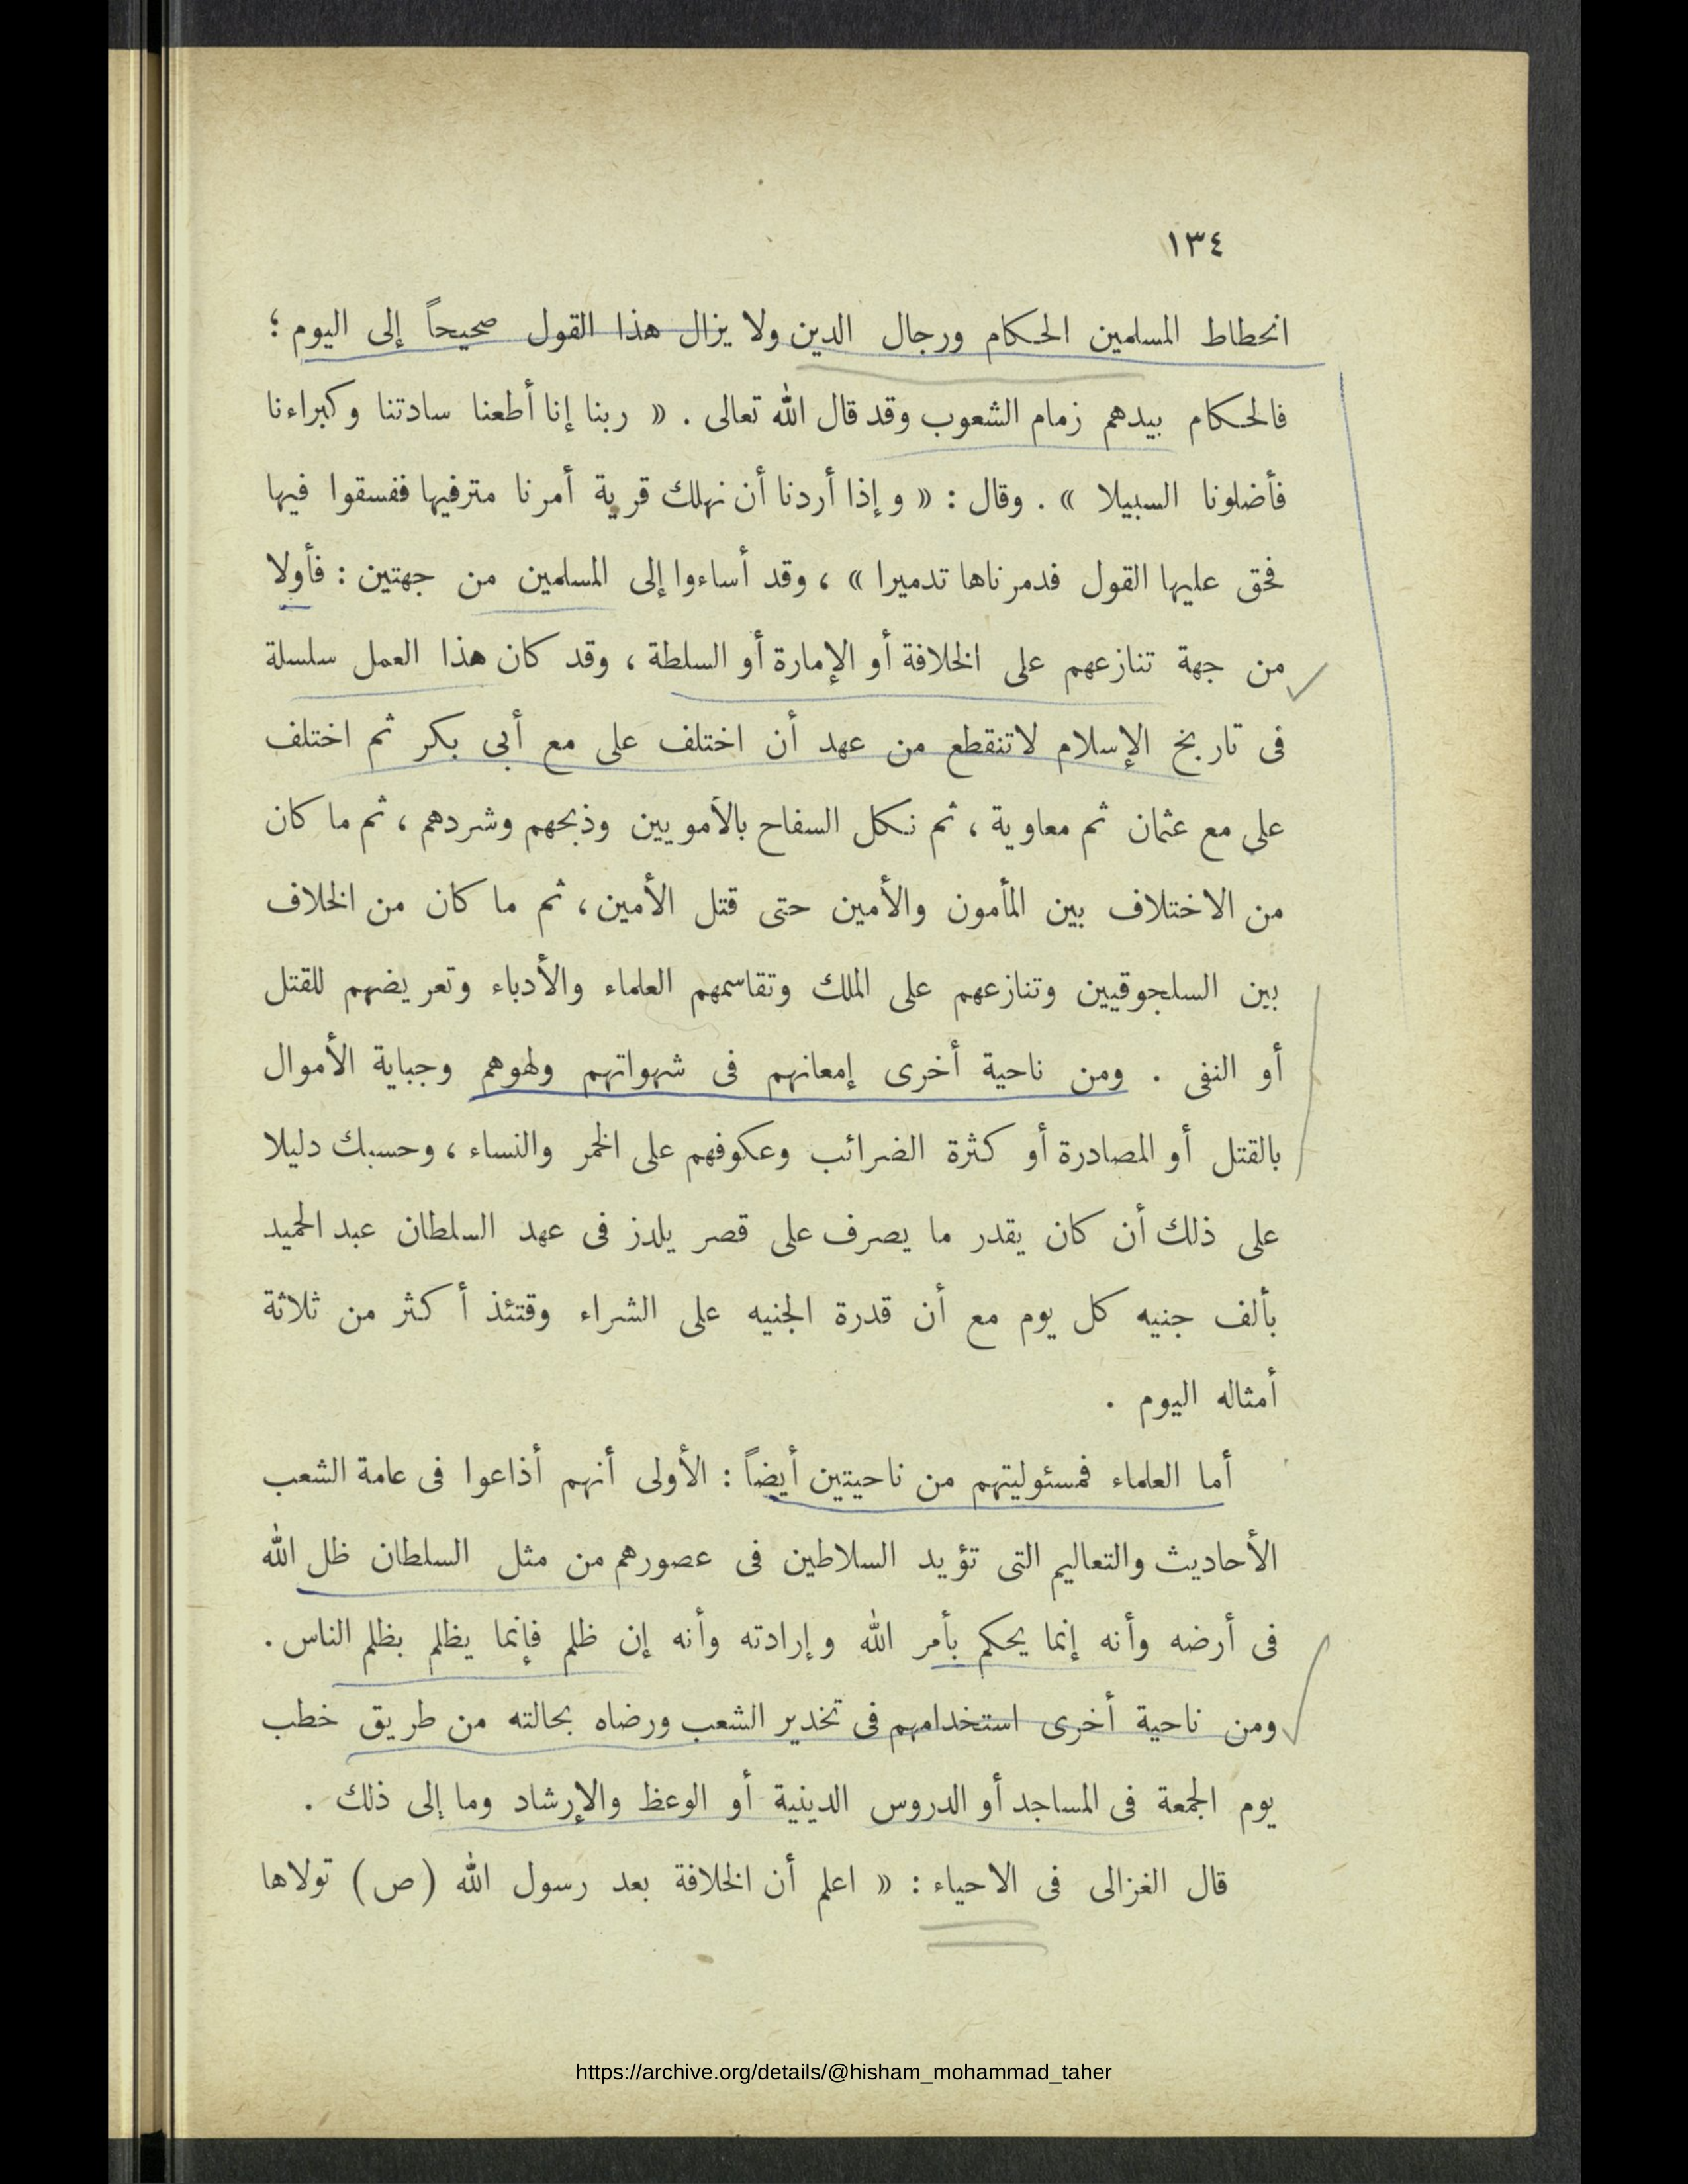 ١٣٤
انحطاط المسلمين الحكام ورجال الدين ولا يزال هذا القول صحيحاً إلى اليوم ؛
فالحكام بيدهم زمام الشعوب وقد قال الله تعالى . « ربنا إنا أطعنا سادتنا وكبراءنا
فأضلونا السبيلا » . وقال : « وإذا أردنا أن نهلك قرية أمرنا مترفيها ففسقوا فيها
فحق عليها القول فدمرناها تدميرا » ، وقد أساءوا إلى المسلمين من جهتين : فأولا
من جهة تنازعهم على الخلافة أو الإمارة أو السلطة ، وقد كان هذا العمل سلسلة
فى تاريخ الإسلام لاتنقطع من عهد أن اختلف على مع أبى بكر ثم اختلف
على مع عثمان ثم معاوية ، ثم نكل السفاح بالأمويين وذبحهم وشردهم ، ثم ما كان
من الاختلاف بين المأمون والأمين حتى قتل الأمين ، ثم ما كان من الخلاف
بين السلجوقيين وتنازعهم على الملك وتقاسمهم العلماء والأدباء وتعريضهم للقتل
أو النفى . ومن ناحية أخرى إمعانهم فى شهواتهم ولهوهم وجباية الأموال
بالقتل أو المصادرة أو كثرة الضرائب وعكوفهم على الخمر والنساء ، وحسبك دليلا
على ذلك أن كان يقدر ما يصرف على قصر يلدز فى عهد السلطان عبد الحميد
بألف جنيه كل يوم مع أن قدرة الجنيه على الشراء وقتئذ أكثر من ثلاثة
أمثاله اليوم .
أما العلماء فمسئوليتهم من ناحيتين أيضاً : الأولى أنهم أذاعوا فى عامة الشعب
الأحاديث والتعاليم التى تؤيد السلاطين فى عصورهم من مثل السلطان ظل الله
فى أرضه وأنه إنما يحكم بأمر الله وإرادته وأنه إن ظلم فإنما يظلم بظلم الناس .
ومن ناحية أخرى استخدامهم فى تخدير الشعب ورضاه بحالته من طريق خطب
يوم الجمعة فى المساجد أو الدروس الدينية أو الوعظ والإرشاد وما إلى ذلك .
قال الغزالى فى الاحياء : « اعلم أن الخلافة بعد رسول الله (ص) تولاها
https://archive.org/details/@hisham_mohammad_taher